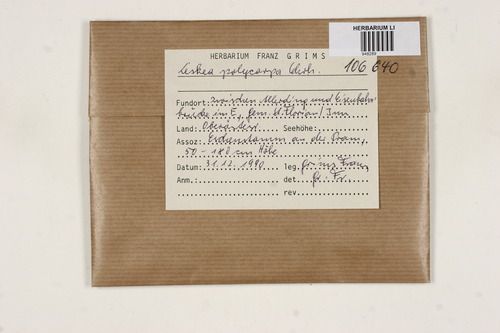 HERBARIUM LI
946289
HERBARIUM FRANZ GRIMS
Leskea polycarpa Ehrh. 106 640
Fundort: zwischen und Eisenbahn
brücke in E, Gem. St. Florian/Inn
Land: Oberösterr. Seehöhe:
Assoz: an der Pram,
50 - 180 cm Höhe
Datum: 31.12.1990 leg. Grims Franz
Anm.: det. Gr. Fr.
rev.